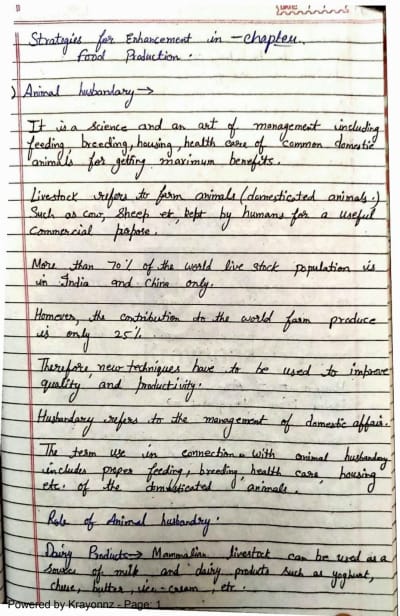 Date
Stratigies for Enhancement in - chapter.
Food Production.
) Animal husbandary →
It is a science and an art of management including
feeding, breeding, housing, health care of common domestic
animals for getting maximum benefits.
Livestock refers to farm animals (domesticated animals.)
Such as cow, sheep etc, kept by humans for a useful
Commercial papose.
More than 70% of the world live stock population is
in India and China only.
However, the contribution to the world farm produce
is only 25%.
Therefore, new techniques have to be used to improve
quality and productivity.
Husbandary refers to the management of domestic affair.
The term use in connection with animal husbandary
includes proper feeding, breeding, health care, housing
etc. of the domesticated animals.
Role of Animal husbandry.
Dairy Products → Mammalian livestock can be used as a
source of milk and dairy products such as yoghurt,
cheese, butter, ice-cream, etc.
Powered by Krayonnz - Page: 1